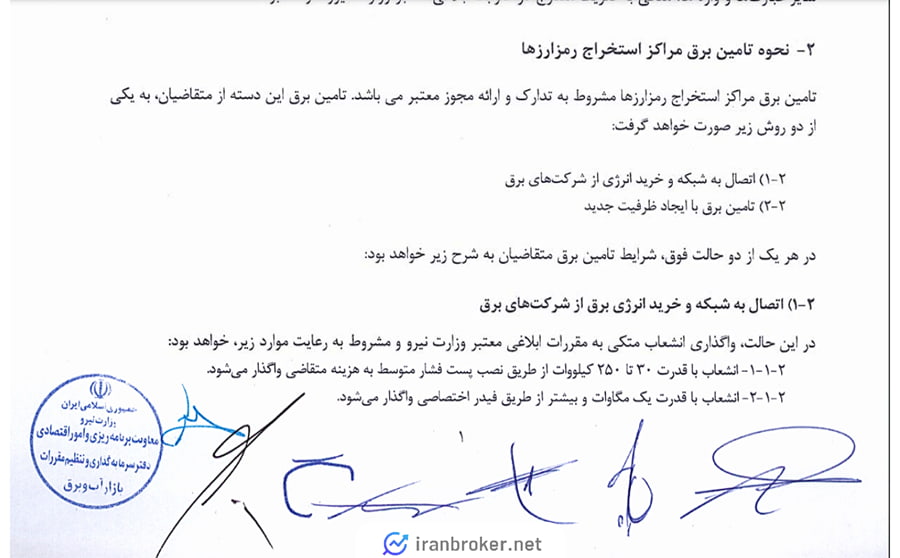 ۲- نحوه تامین برق مراکز استخراج رمزارزها
تامین برق مراکز استخراج رمزارزها مشروط به تدارک و ارائه مجوز معتبر می باشد. تامین برق این دسته از متقاضیان، به یکی
از دو روش زیر صورت خواهد گرفت:
۲-۱) اتصال به شبکه و خرید انرژی از شرکت‌های برق
۲-۲) تامین برق با ایجاد ظرفیت جدید
در هر یک از دو حالت فوق، شرایط تامین برق متقاضیان به شرح زیر خواهد بود:
۲-۱) اتصال به شبکه و خرید انرژی برق از شرکت‌های برق
در این حالت، واگذاری انشعاب متکی به مقررات ابلاغی معتبر وزارت نیرو و مشروط به رعایت موارد زیر، خواهد بود:
۲-۱-۱- انشعاب با قدرت ۳۰ تا ۲۵۰ کیلووات از طریق نصب پست فشار متوسط به هزینه متقاضی واگذار می‌شود.
۲-۱-۲- انشعاب با قدرت یک مگاوات و بیشتر از طریق فیدر اختصاصی واگذار می‌شود.
۱
جمهوری اسلامی ایران
وزارت نیرو
معاونت برنامه ریزی و امور اقتصادی
دفتر سرمایه گذاری و تنظیم مقررات
بازار آب و برق
iranbroker.net